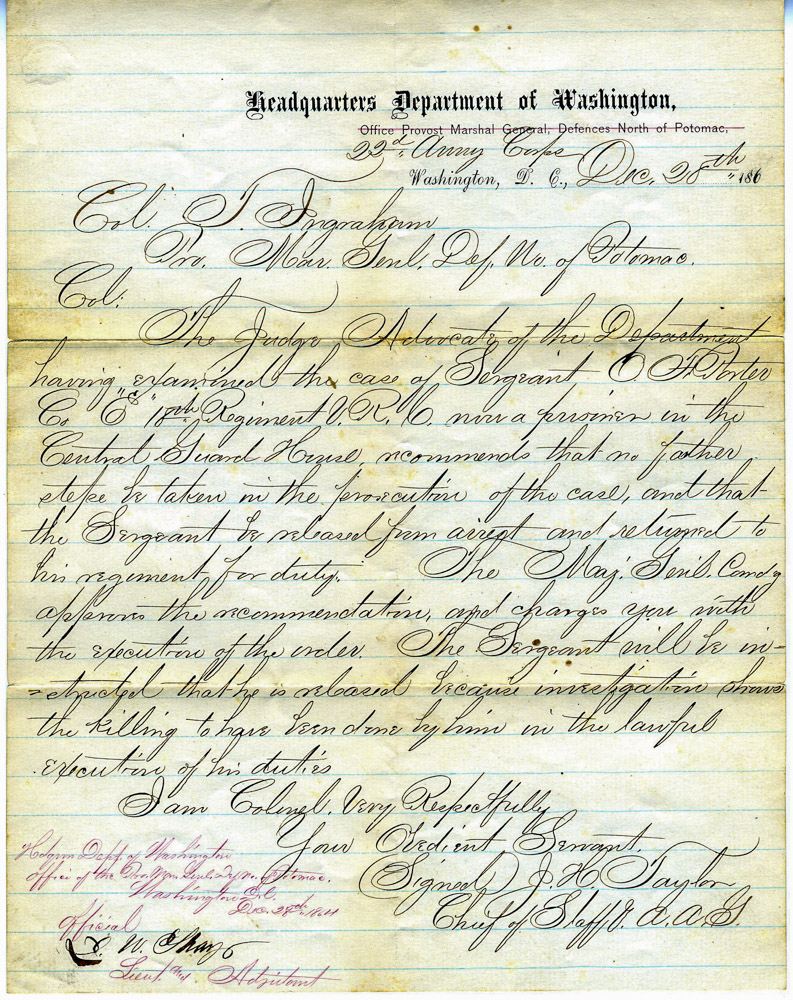 Headquarters Department of Washington,
Office Provost Marshal General, Defences North of Potomac,
22d Army Corps
Washington, D. C., Dec. 28th 186
Col. T. Ingraham
Pro. Mar. Genl. Def. No. of Potomac.
Col:
The Judge Advocate of the Department
having examined the case of Sergeant O. F. Porter
Co "E" Regiment V. R. C. now a prisoner in the
Central Guard House, recommends that no farther
steps be taken in the prosecution of the case, and that
the Sergeant be released from arrest and returned to
his regiment for duty. The Maj. Genl. Comdg
approves the recommendation, and charges you with
the execution of the order. The Sergeant will be in-
=structed that he is released because investigation shows
the killing to have been done by him in the lawful
execution of his duties
I am Colonel, Very Respectfully
Your Obedient Servant.
(Signed) J. H. Taylor
Chief of Staff & A. A. G.
Hdqrs Dept. of Washington
Office of the Pro. Mar. Genl. Def. No. of Potomac.
Washington D.C.
Dec. 28th 1864
Official
W.
Lieut. Adjutant